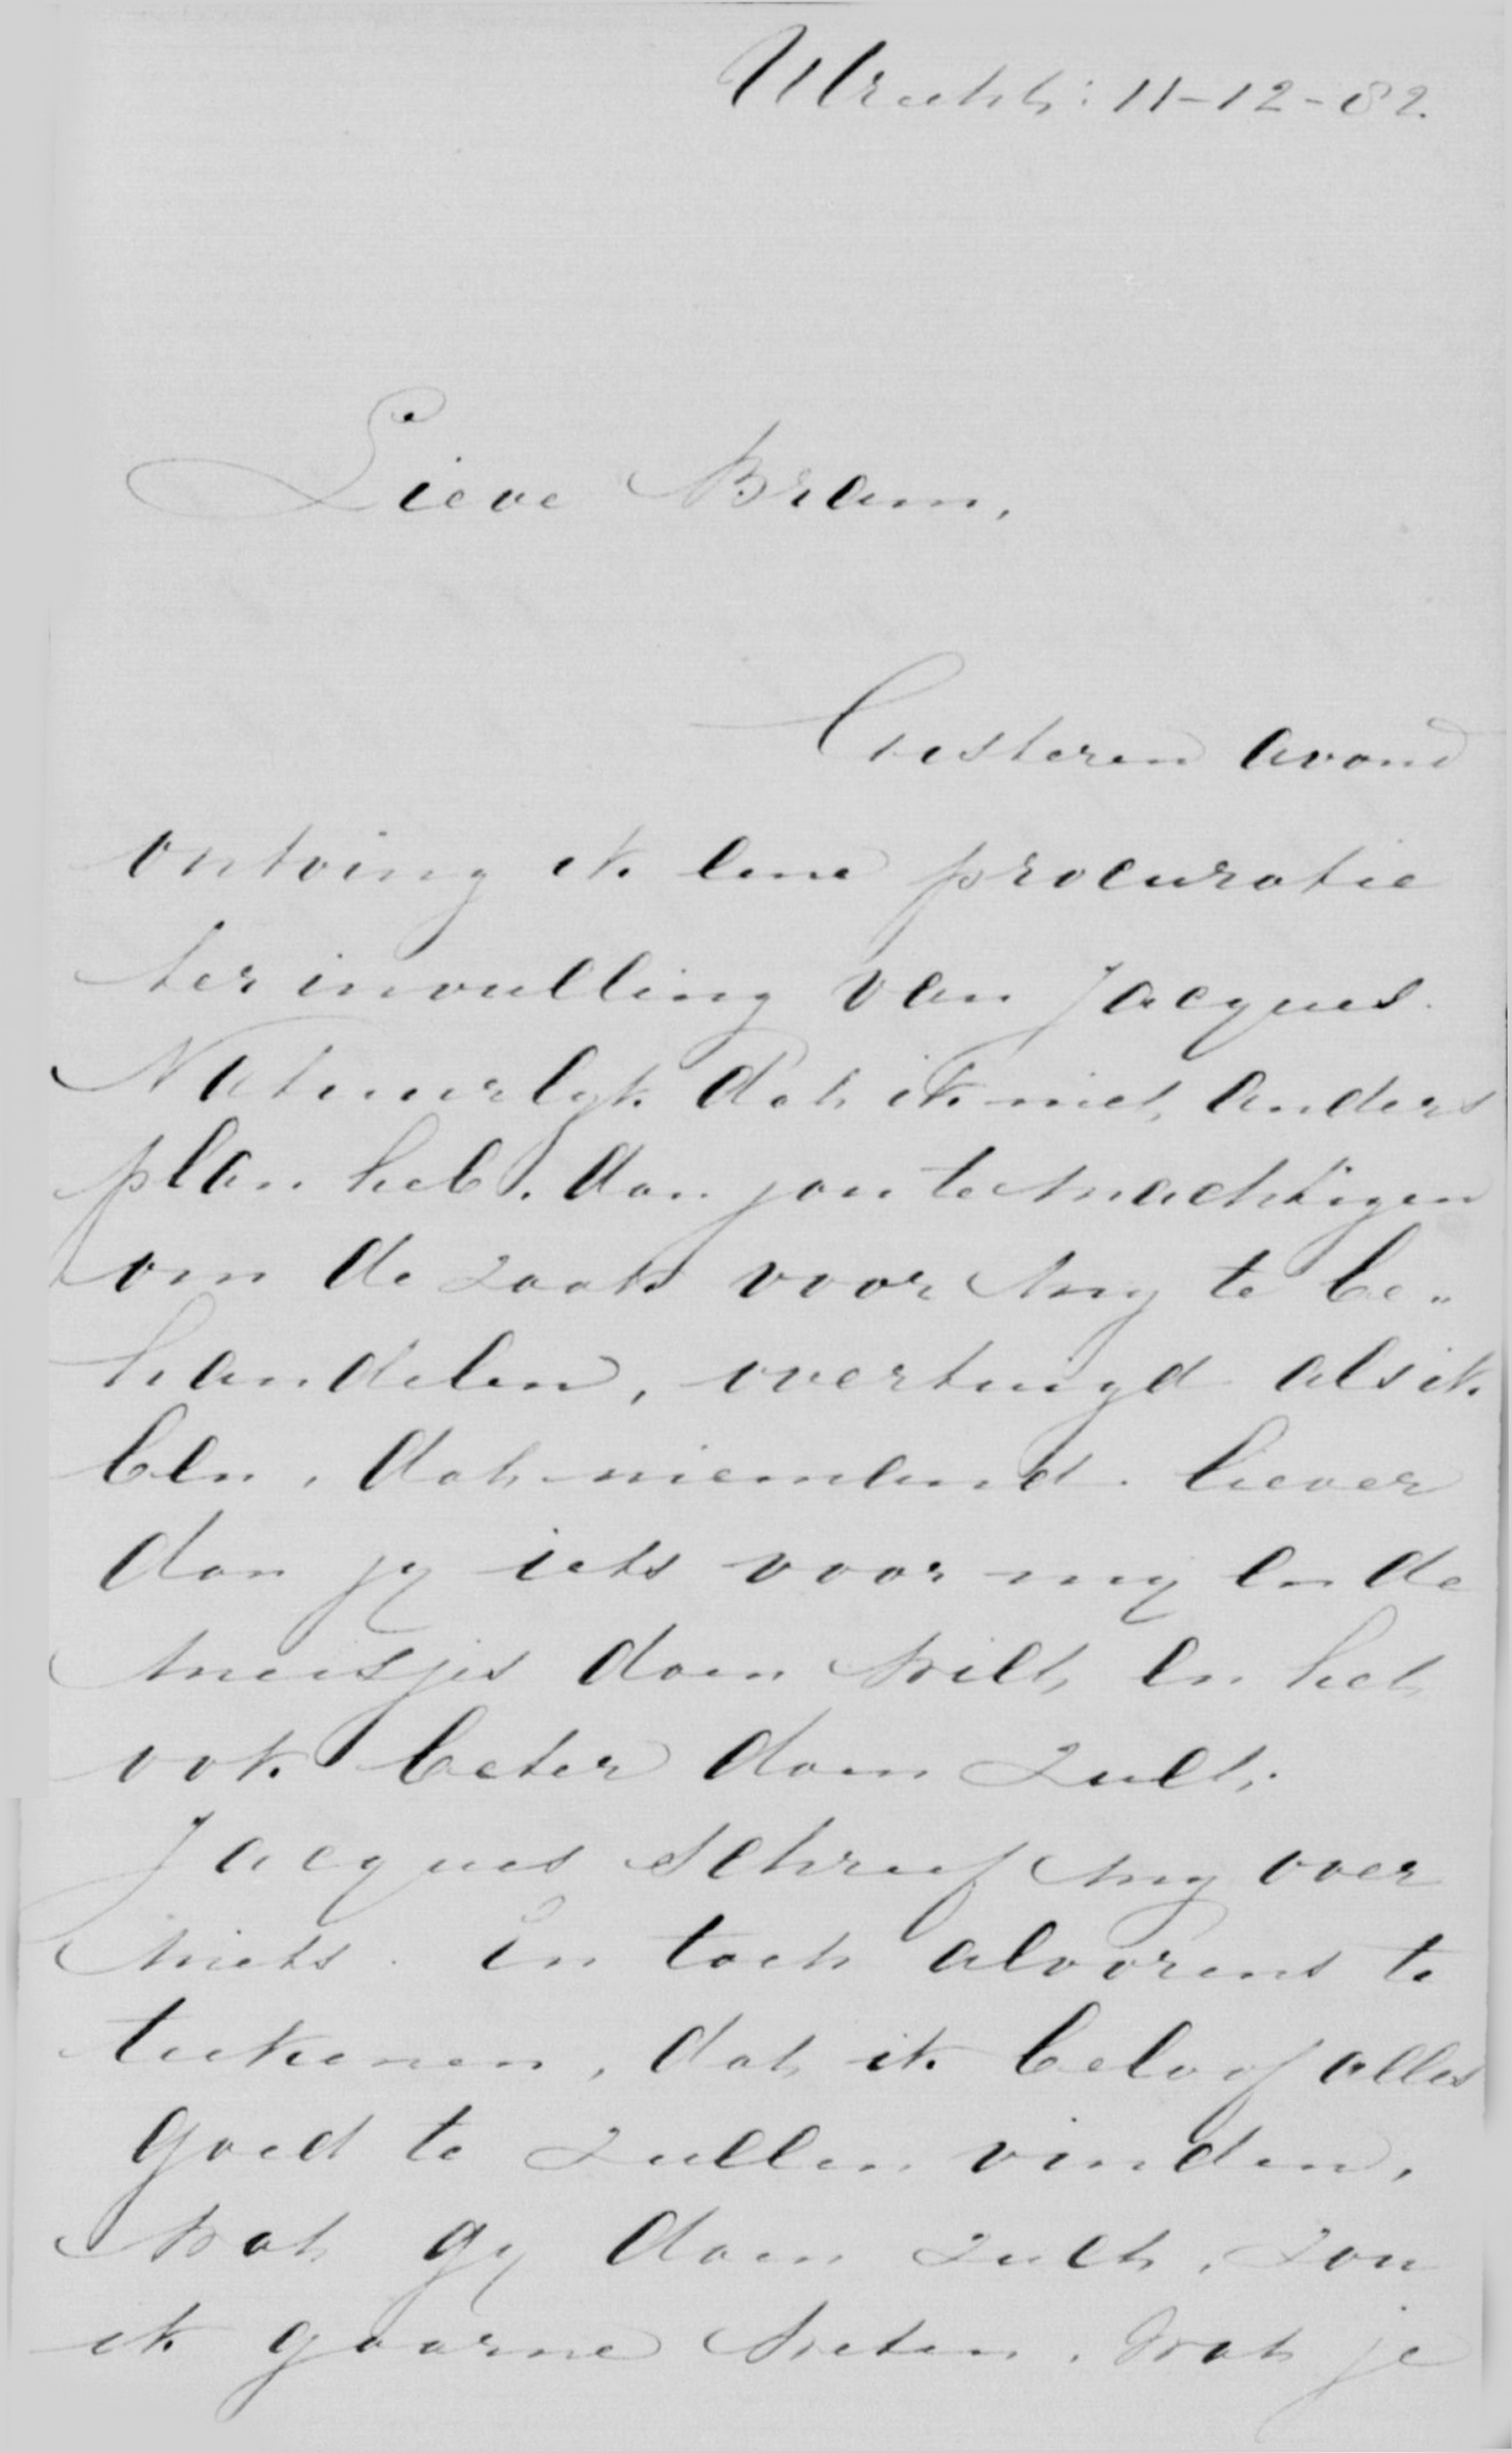 Utrecht: 11-12-82.
Lieve Bram,
Gisteren avond
ontving ik eene procuratie
ter invulling van Jacques.
Natuurlyk dat ik niet anders
plan heb, dan jou te machtigen
om de zaak voor my te be„
handelen, overtuigd als ik
ben, dat niemand liever
dan jy iets voor my en de
meisjes doen wilt en het
ook beter doen zult.
Jacques schreef my over
niets. En toch alvorens te
teekenen, dat ik beloof alles
goed te zullen vinden,
wat gy doen zult, zou
ik gaarne weten, wat je